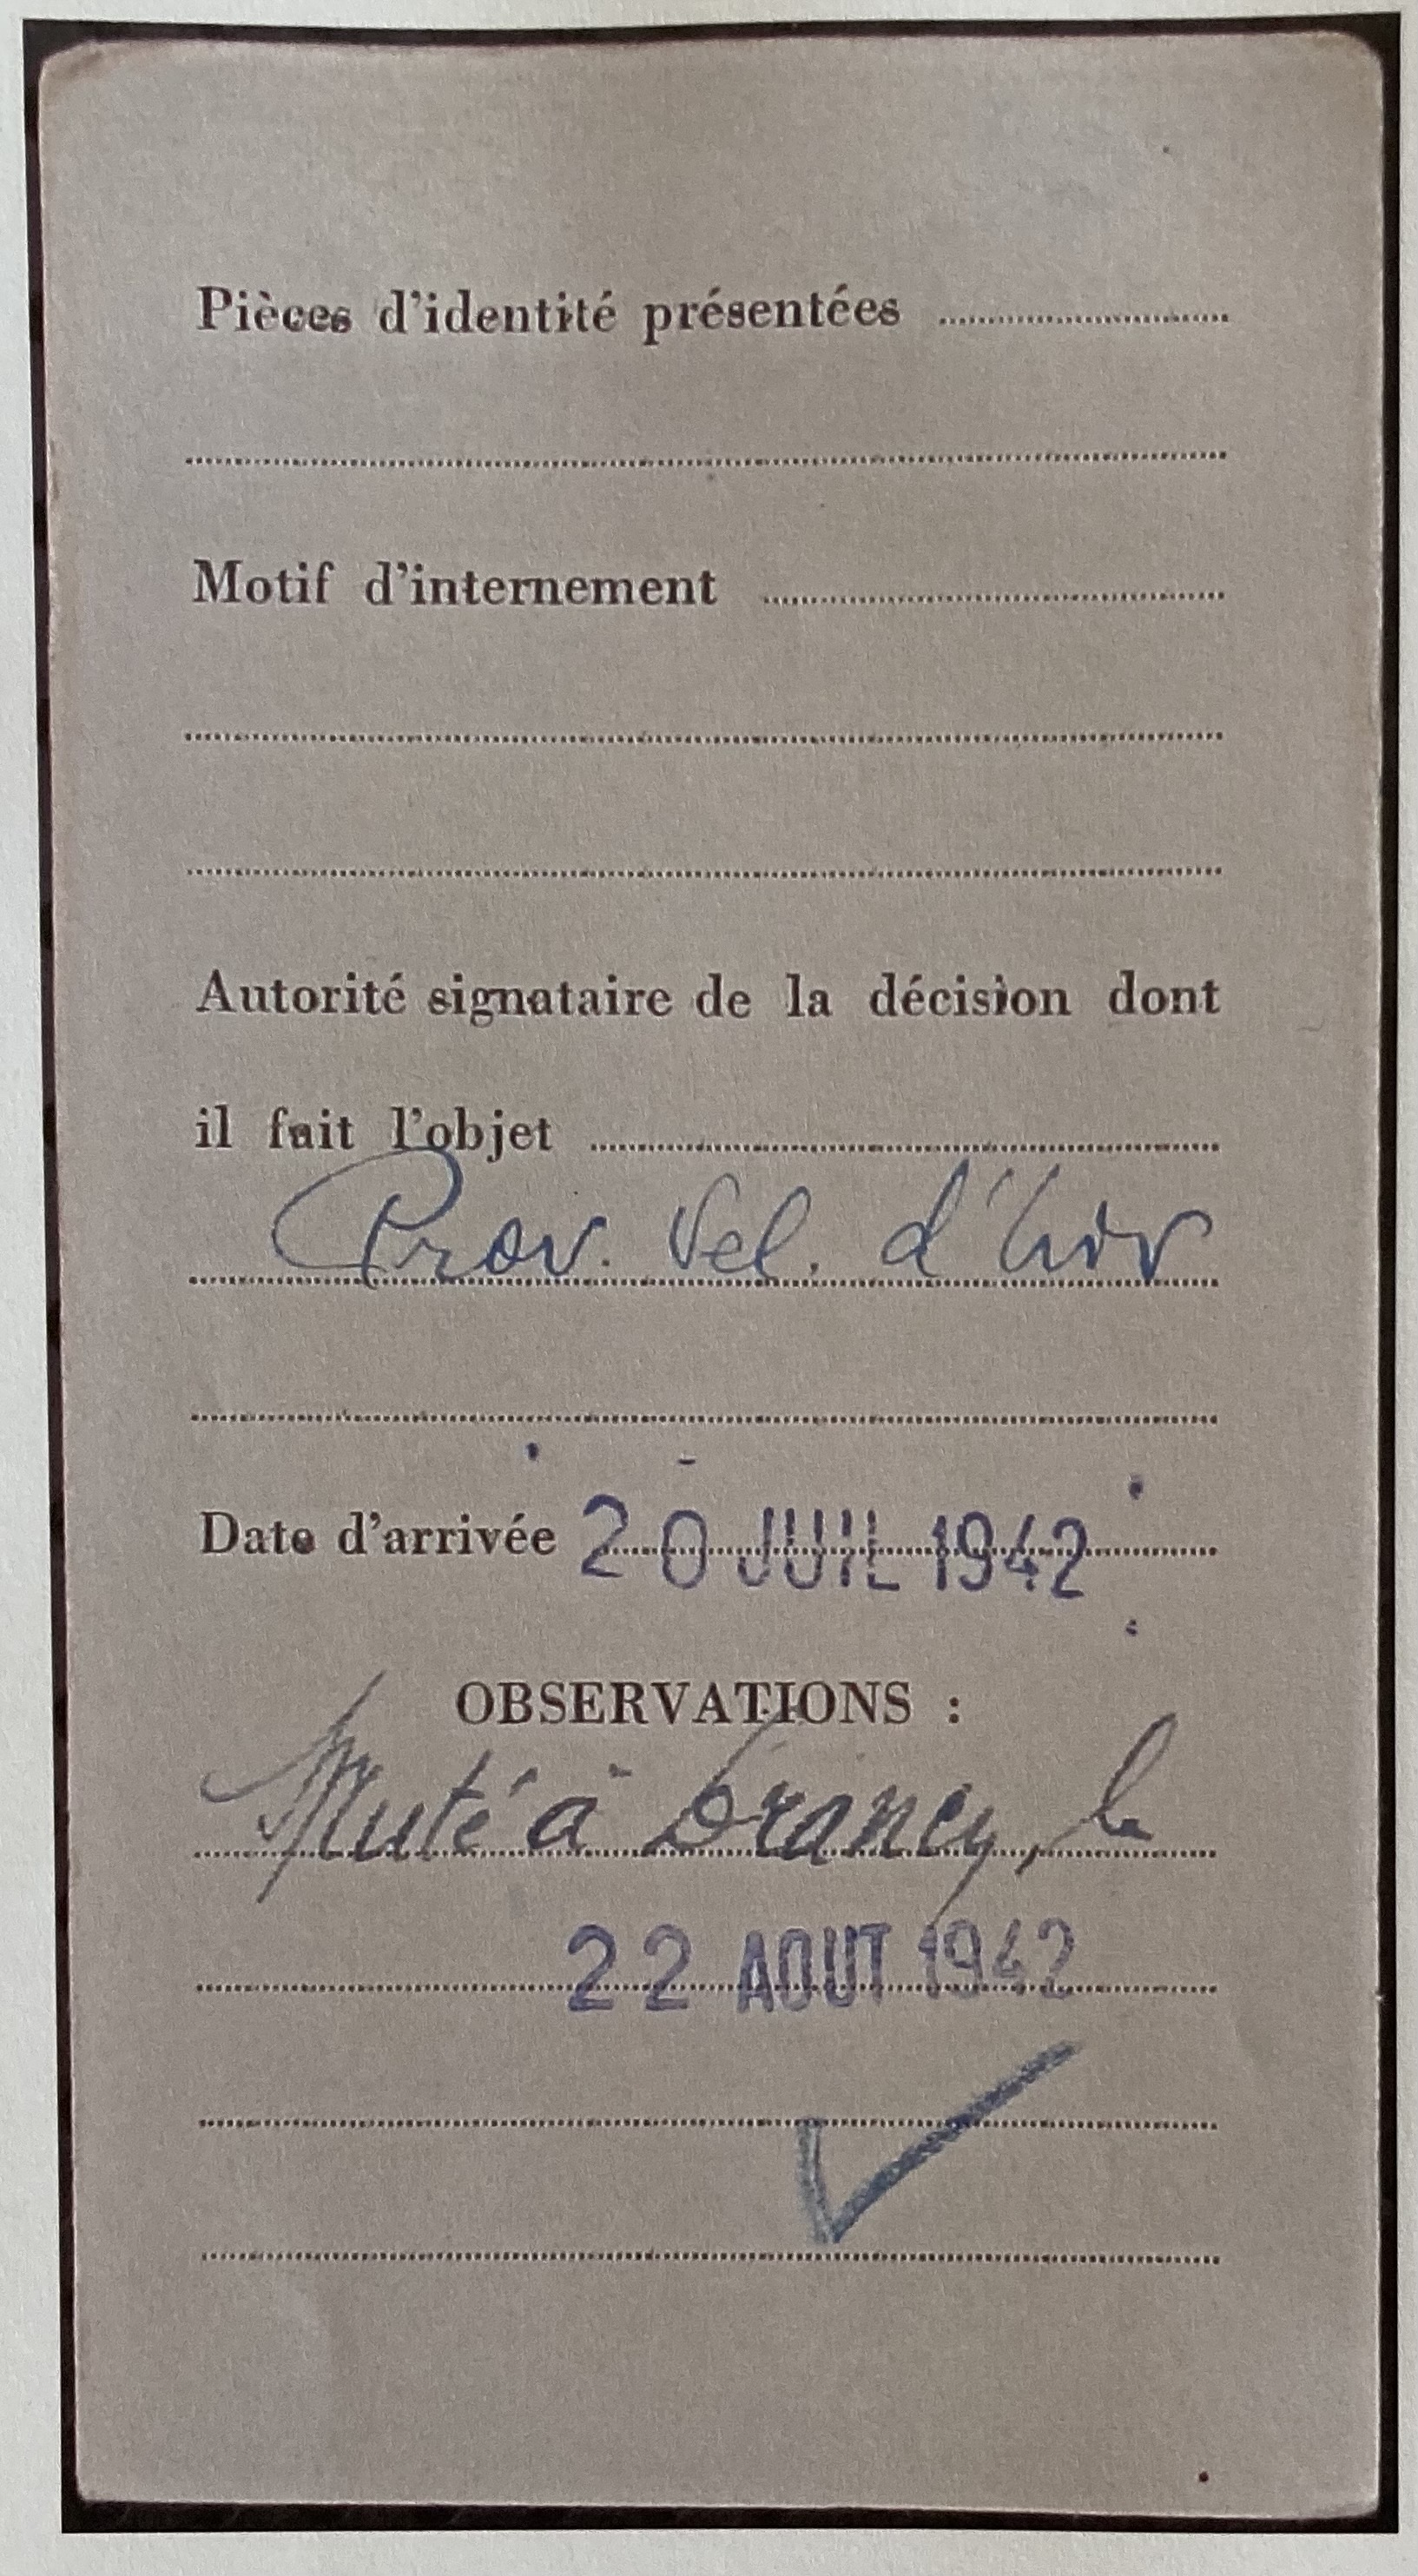 Pièces d'identité présentées
Motif d'internement
Autorité signataire de la décision dont
il fait l'objet
Prov. Vel. d'hiv
Date d'arrivée 20 JUIL 1942
OBSERVATIONS :
Muté à Drancy, le
22 AOUT 1942